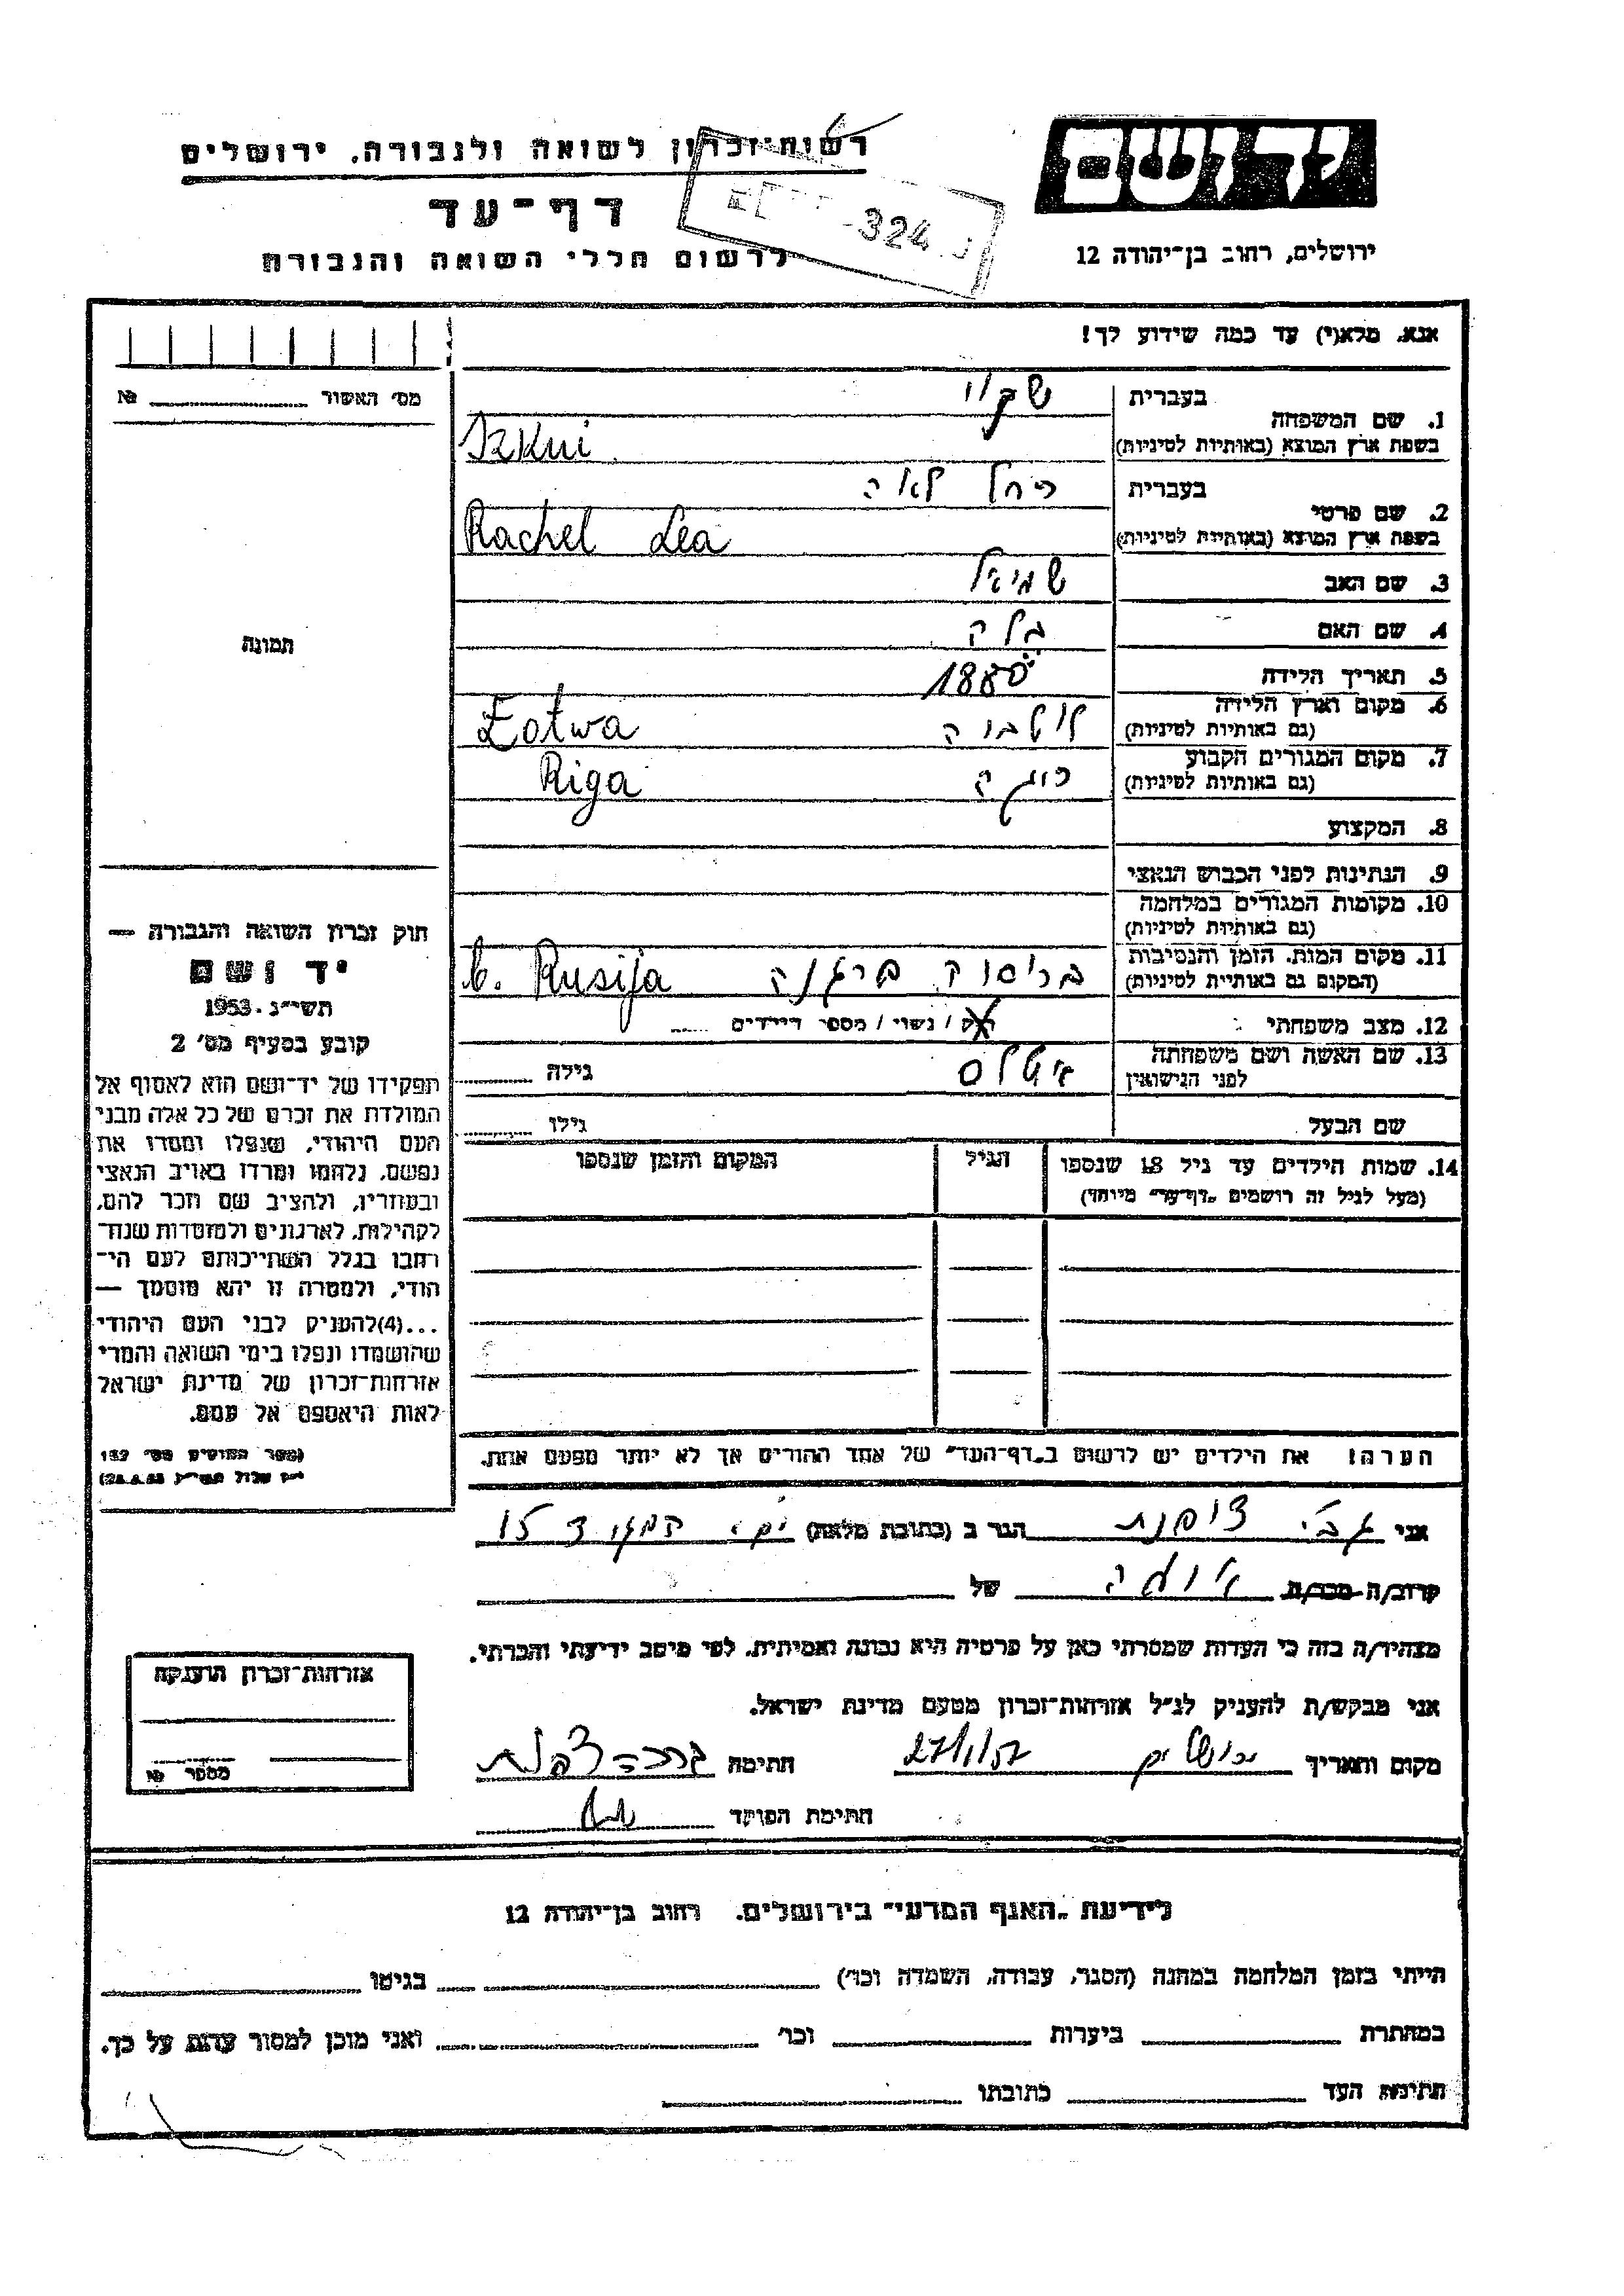 רשות-זכרון לשואה ולגבורה, ירושלים
יד ושם
דף-עד
324
לרשום חללי השואה והגבורה
ירושלים, רחוב בן-יהודה 12
אנא, מלא(י) עד כמה שידוע לך!
מס' האשור № 
1. שם המשפחה
בעברית
בשפת ארץ המוצא (באותיות לטיניות) Izkni
2. שם פרטי
בעברית רחל לאה
בשפת ארץ המוצא (באותיות לטיניות) Rachel Lea
3. שם האב שמואל
4. שם האם
תמונה
5. תאריך הלידה 1880
6. מקום וארץ הלידה
(גם באותיות לטיניות) לוטבוה Łotwa
7. מקום המגורים הקבוע
(גם באותיות לטיניות) ריגה Riga
8. המקצוע
9. הנתינות לפני הכבוש הנאצי
10. מקומות המגורים במלחמה
(גם באותיות לטיניות)
11. מקום המות, הזמן והנסיבות
(המקום גם באותיות לטיניות) ברוסיה Rusija
12. מצב משפחתי רווק / נשוי / מספר הילדים
13. שם האשה ושם משפחתה
לפני הנישואין גילה
שם הבעל גילו
14. שמות הילדים עד גיל 18 שנספו
(מעל לגיל זה רושמים "דף-עד" מיוחד)
הגיל
המקום והזמן שנספו
הערה! את הילדים יש לרשום ב"דף-העד" של אחד ההורים אך לא יותר מפעם אחת.
חוק זכרון השואה והגבורה —
יד ושם
תשי"ג - 1953
קובע בסעיף מס' 2
תפקידו של יד-ושם הוא לאסוף אל
המולדת את זכרם של כל אלה מבני
העם היהודי, שנפלו ומסרו את
נפשם, נלחמו ומרדו באויב הנאצי
ובעוזריו, ולהציב שם וזכר להם,
לקהילות, לארגונים ולמוסדות שנח-
רבו בגלל השתייכותם לעם הי-
הודי, ולמטרה זו יהא מוסמך —
...(4)להעניק לבני העם היהודי
שהושמדו ונפלו בימי השואה והמרי
אזרחות-זכרון של מדינת ישראל
לאות היאספם אל עמם.
(ספר החוקים מס' 132
אני הגר ב (כתובת מלאה) 15
קרוב/ה מכר/ה של
מצהיר/ה בזה כי העדות שמסרתי כאן על פרטיה היא נכונה ואמיתית, לפי מיטב ידיעתי והכרתי.
אני מבקש/ת להעניק לנ"ל אזרחות-זכרון מטעם מדינת ישראל.
מקום ותאריך ירושלים 27/1/57 חתימה
חתימת הפוקד
אזרחות-זכרון הוענקה
מספר №
לידיעת "האגף המדעי" בירושלים, רחוב בן-יהודה 12
הייתי בזמן המלחמה במחנה (הסגר, עבודה, השמדה וכו') בגיטו
במחתרת ביערות וכו' ואני מוכן למסור עדות על כך.
חתימת העד כתובתו